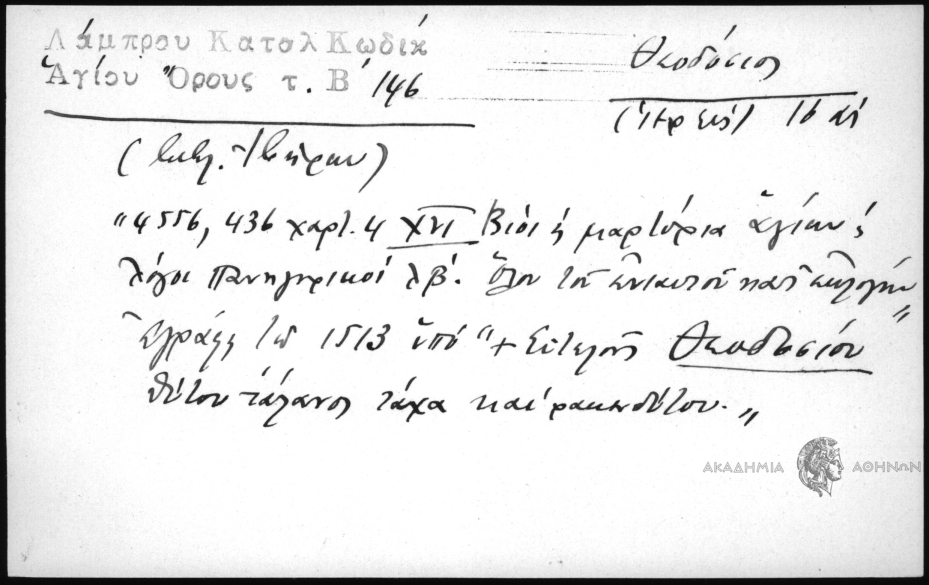 Λάμπρου Καταλ Κωδικ
Ἁγίου Ὄρους τ. Β 146
Θεοδόσιος
(ἱερεὺς) 16 αἰ
(Ἰβήρων)
"4556, 436 χαρτ. 4 XVI Βίοι ἢ μαρτύρια ἁγίων ἢ
λόγοι πανηγυρικοὶ λβ΄. ὅλου τοῦ ἐνιαυτοῦ κατ' ἐκλογήν"
Ἐγράφη τῷ 1513 ὑπὸ "+ Εὐτελοῦς Θεοδοσίου
θύτου τάλανος τάχα καὶ ρακενδύτου."
ΑΚΑΔΗΜΙΑ ΑΘΗΝΩΝ